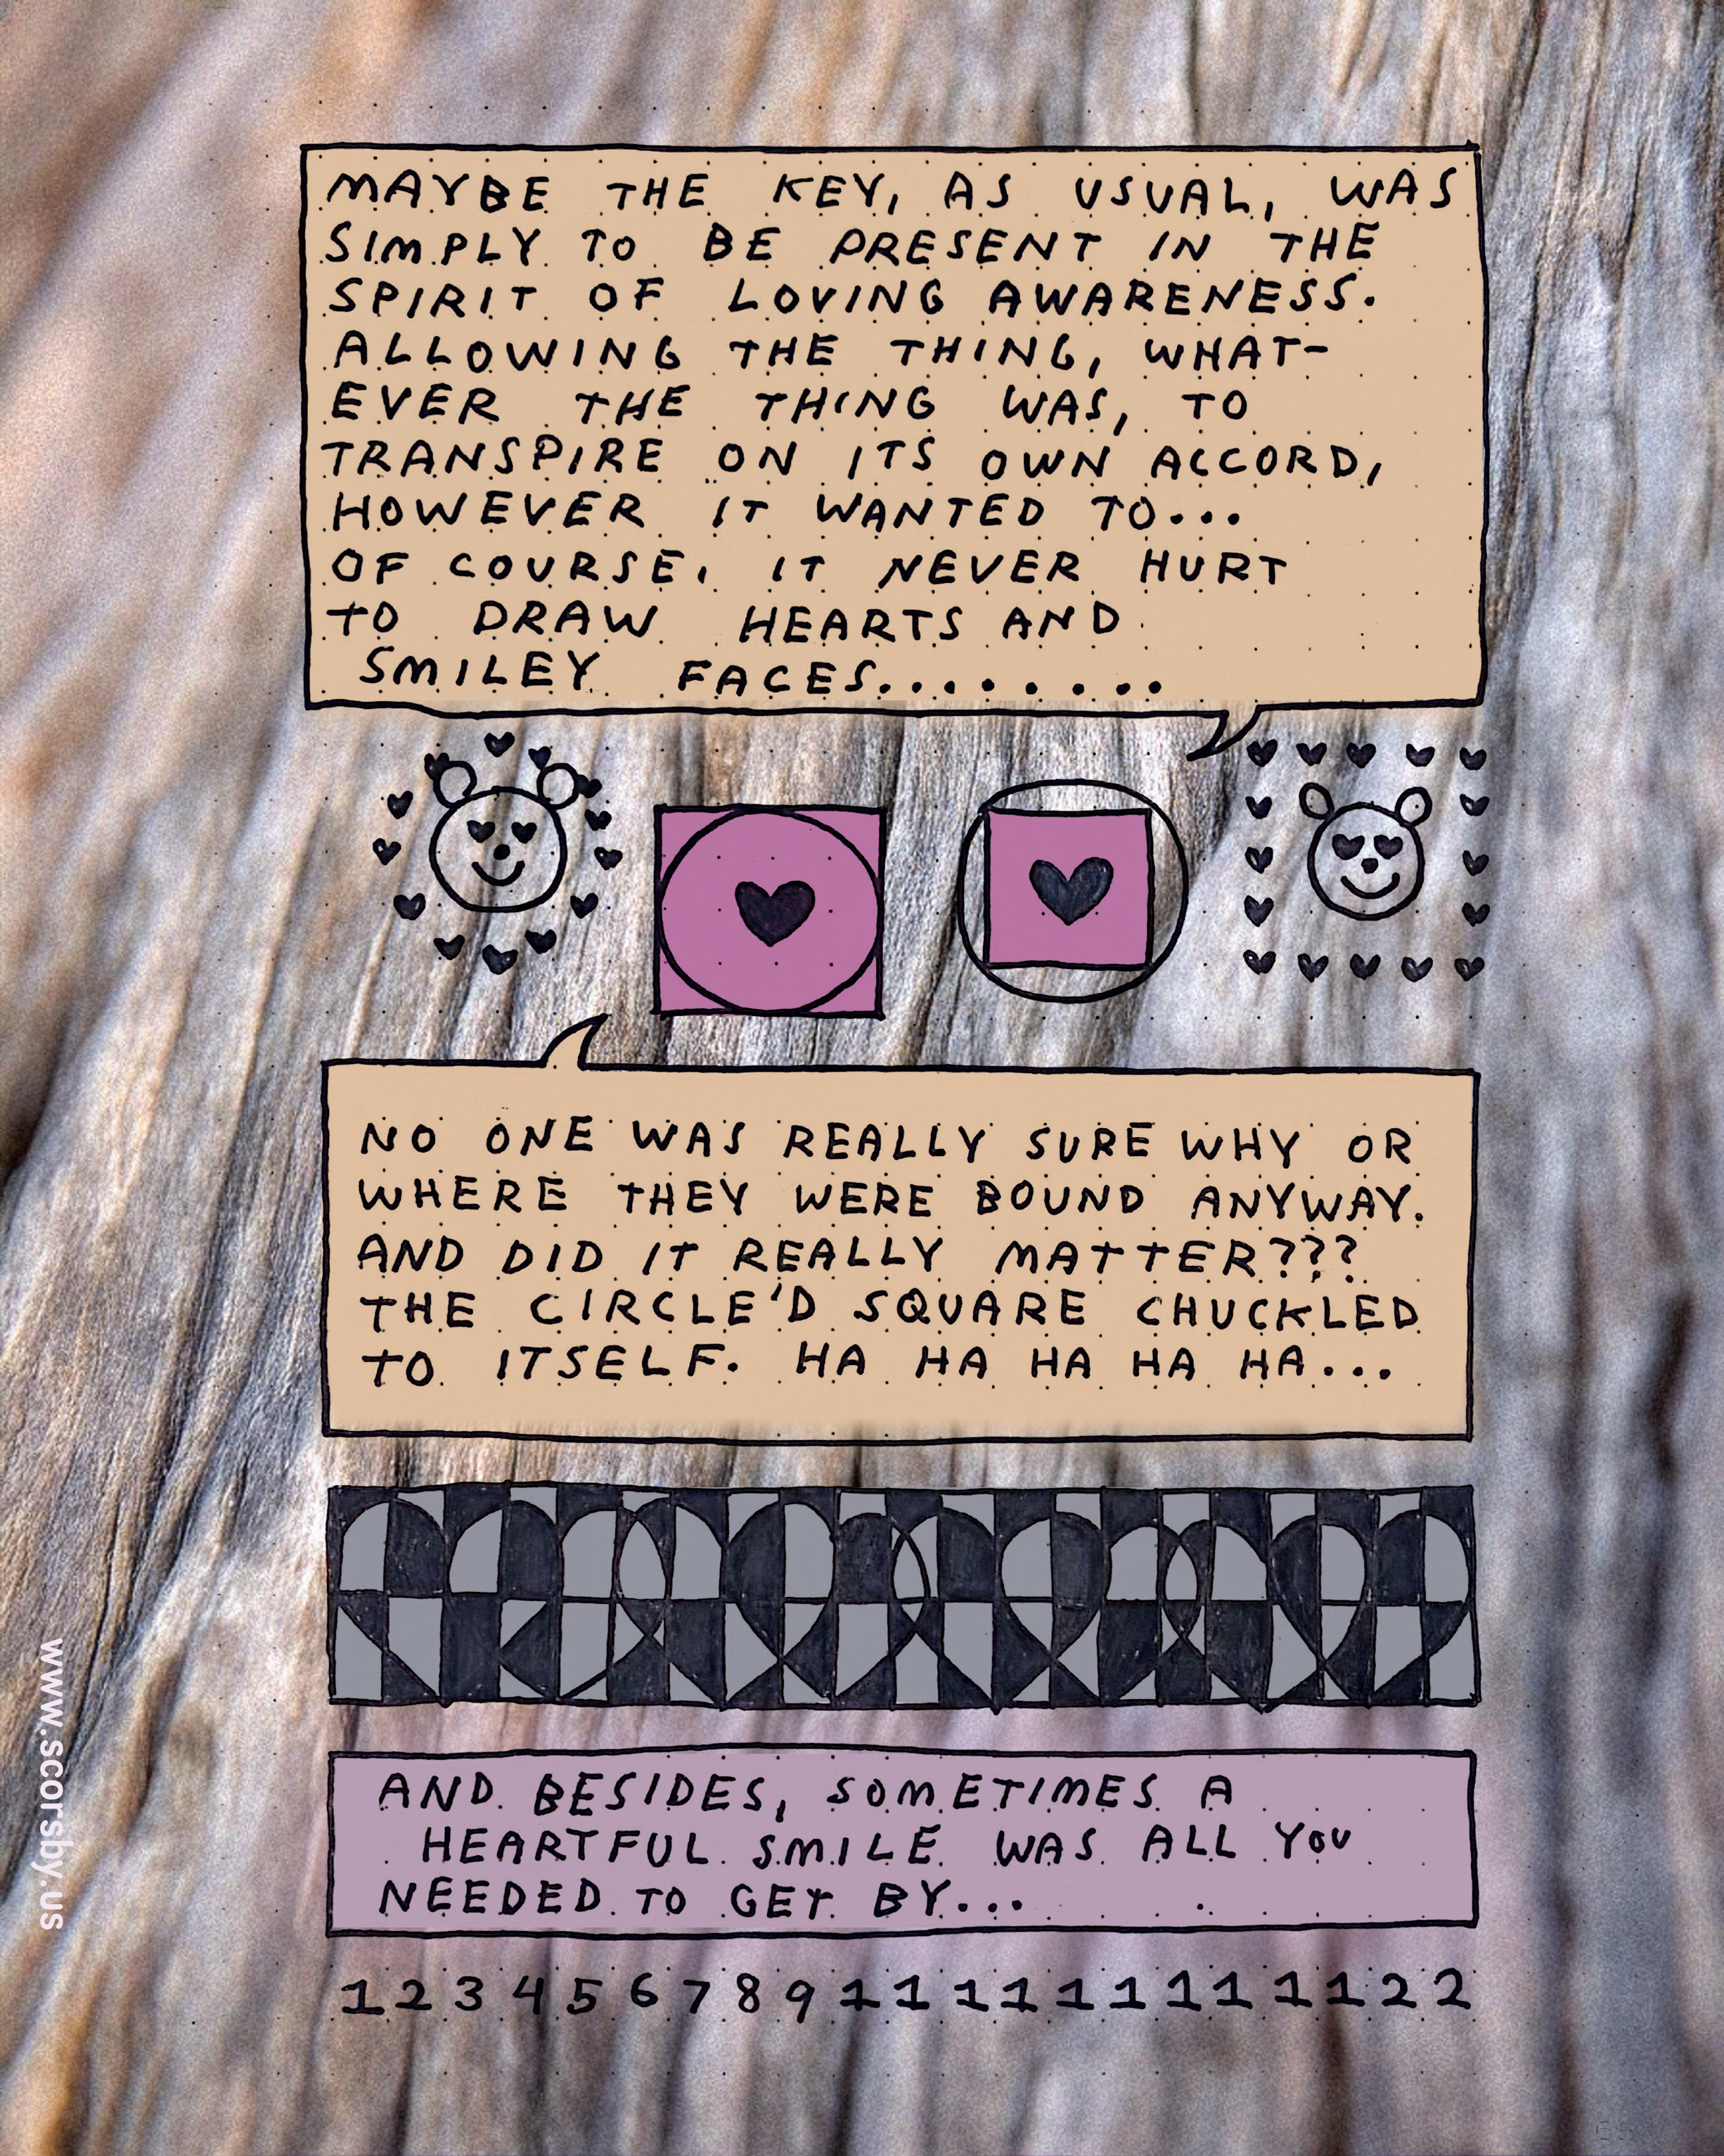 MAYBE THE KEY, AS USUAL, WAS
SIMPLY TO BE PRESENT IN THE
SPIRIT OF LOVING AWARENESS.
ALLOWING THE THING, WHAT-
EVER THE THING WAS, TO
TRANSPIRE ON ITS OWN ACCORD,
HOWEVER IT WANTED TO...
OF COURSE, IT NEVER HURT
TO DRAW HEARTS AND
SMILEY FACES........
NO ONE WAS REALLY SURE WHY OR
WHERE THEY WERE BOUND ANYWAY.
AND DID IT REALLY MATTER???
THE CIRCLE'D SQUARE CHUCKLED
TO ITSELF. HA HA HA HA HA...
AND BESIDES, SOMETIMES A
HEARTFUL SMILE WAS ALL YOU
NEEDED TO GET BY...
1 2 3 4 5 6 7 8 9 1 1 1 1 1 1 1 1 1 1 2 2
www.scorsby.us